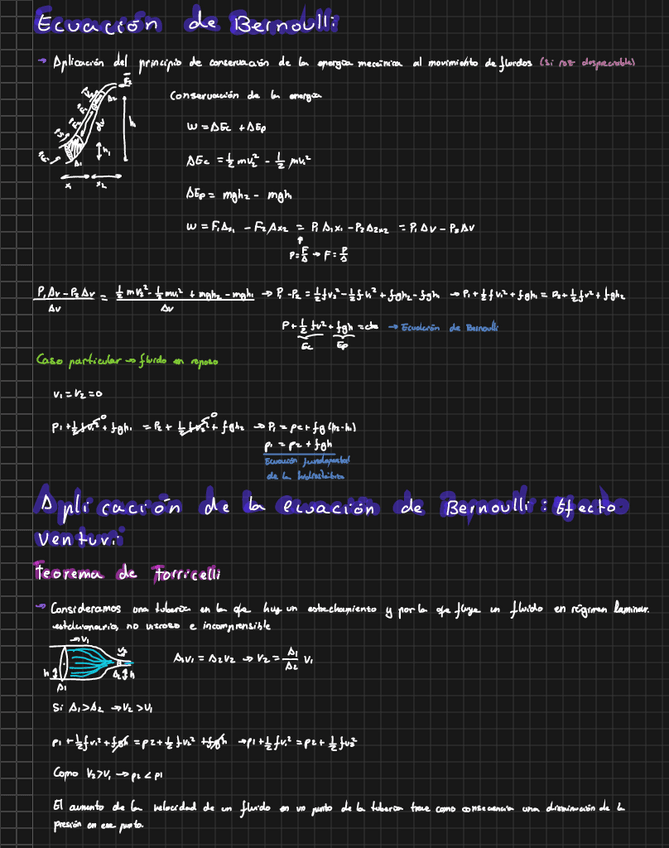 Ecuación de Bernoulli:
→ Aplicación del principio de conservación de la energía mecánica al movimiento de fluidos (si roz despreciable)
Conservación de la energía
W = ΔEc + ΔEp
ΔEc = ½ mv₂² - ½ mv₁²
ΔEp = mgh₂ - mgh
W = F₁Δx₁ - F₂Δx₂ = P₁A₁x₁ - P₂A₂x₂ = P₁ΔV - P₂ΔV
h₁ h
x₁ x₂
(P₁ΔV - P₂ΔV)/ΔV = (½mv₂² - ½mv₁² + mgh₂ - mgh₁)/ΔV → P₁ - P₂ = ½ρv² - ½ρv₁² + ρgh₂ - ρgh₁ → P₁ + ½ρv₁² + ρgh₁ = P₂ + ½ρv² + ρgh₂
P + ½ρv² + ρgh = cte → Ecuación de Bernoulli
Ec Ep
Caso particular → fluido en reposo
v₁ = v₂ = 0
P₁ + ½ρv₁² + ρgh₁ = P₂ + ½ρv₂² + ρgh₂ → P₁ = P₂ + ρg(h₂-h₁)
P₁ = P₂ + ρgh
Ecuación fundamental
de la hidrostática
Aplicación de la ecuación de Bernoulli: Efecto
Venturi
Teorema de Torricelli
→ Consideramos una tubería en la que hay un estrechamiento y por la que fluye un fluido en régimen laminar.
estacionario, no viscoso e incomprensible
→v₁ v₂
A₁v₁ = A₂v₂ → v₂ = A₁/A₂ v₁
h A₁ A₂ h
Si A₁>A₂ → v₂>v₁
p₁ + ½ρv₁² + ρgh = p₂ + ½ρv₂² + ρgh → p₁ + ½ρv₁² = p₂ + ½ρv₂²
Como v₂>v₁ → p₂<p₁
El aumento de la velocidad de un fluido en un punto de la tubería trae como consecuencia una disminución de la
presión en ese punto.